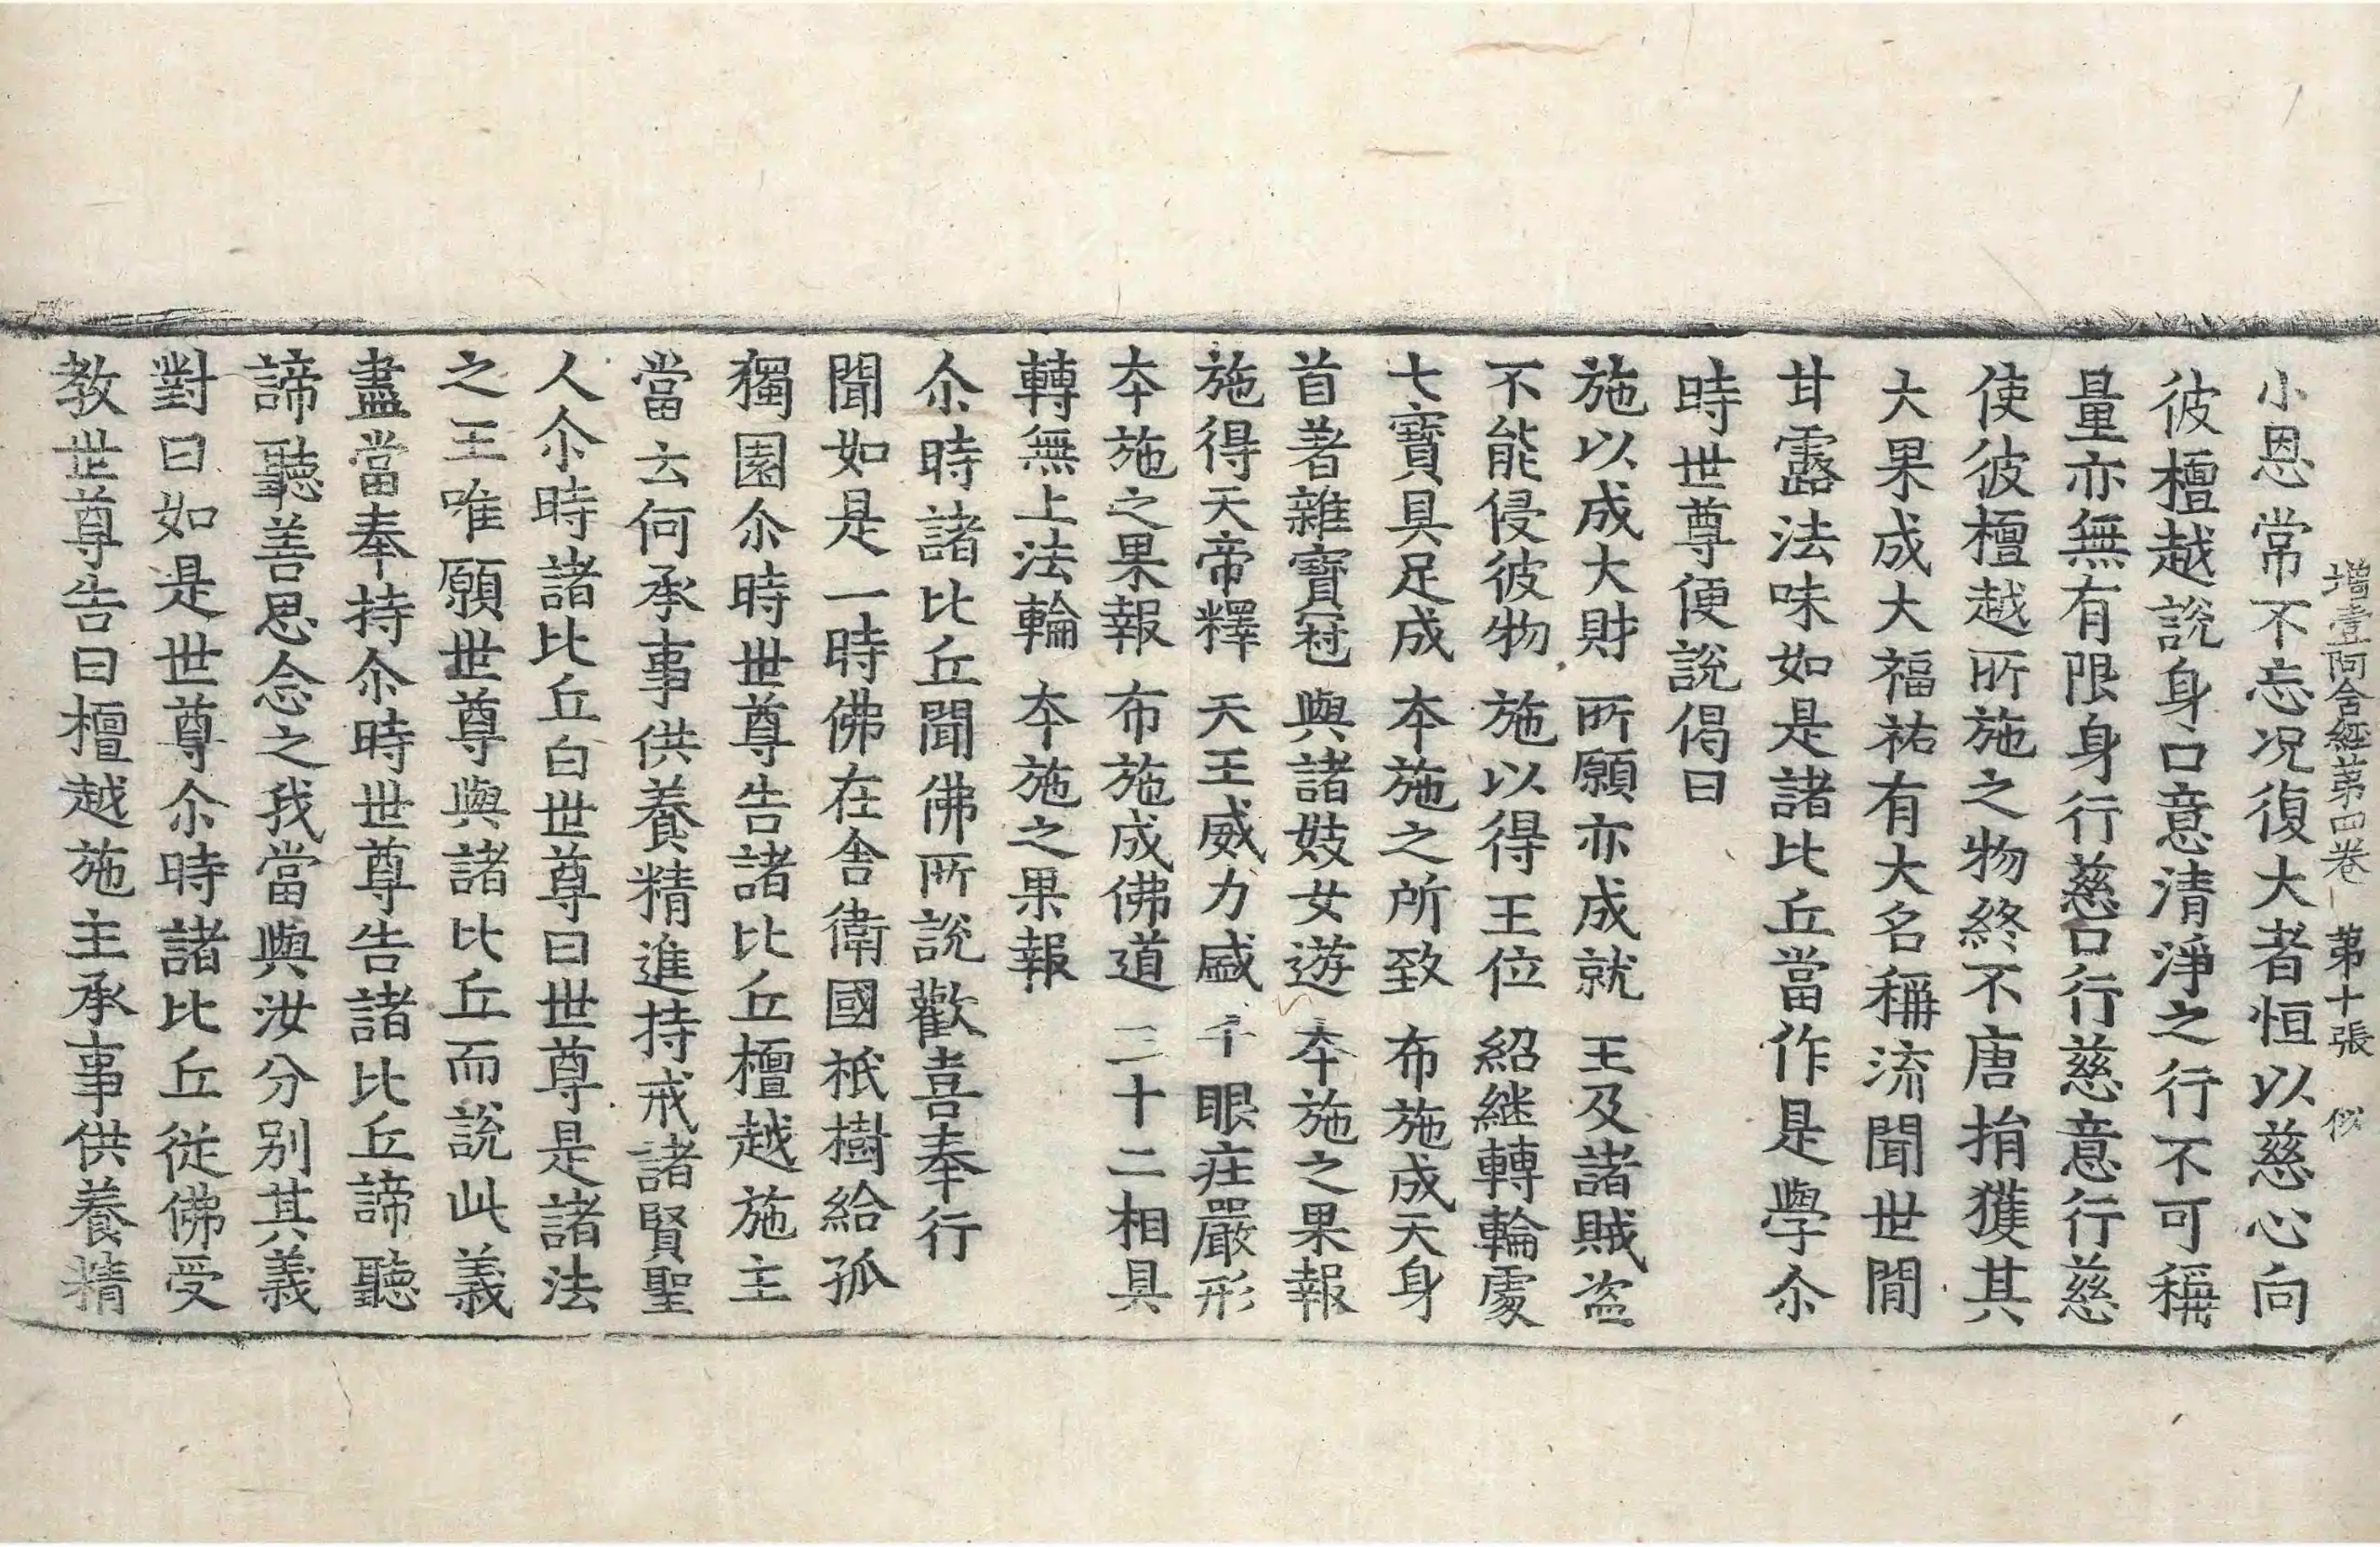 增壹阿含經第四卷 第十張 似
小恩常不忘况復大者恒以慈心向
彼檀越說身口意清淨之行不可稱
量亦無有限身行慈口行慈意行慈
使彼檀越所施之物終不唐捐獲其
大果成大福祐有大名稱流聞世間
甘露法味如是諸比丘當作是學尒
時世尊便說偈曰
施以成大財 所願亦成就 王及諸賊盗
不能侵彼物 施以得王位 紹継轉輪處
七寶具足成 本施之所致 布施成天身
首著雜寶冠 與諸妓女遊 本施之果報
施得天帝釋 天王威力盛 千眼庄嚴形
本施之果報 布施成佛道 三十二相具
轉無上法輪 本施之果報
尒時諸比丘聞佛所說歡喜奉行
聞如是一時佛在舍衛國祇樹給孤
獨園尒時世尊告諸比丘檀越施主
當云何承事供養精進持戒諸賢聖
人尒時諸比丘白世尊曰世尊是諸法
之王唯願世尊與諸比丘而說此義
盡當奉持尒時世尊告諸比丘諦聽
諦聽善思念之我當與汝分別其義
對曰如是世尊尒時諸比丘從佛受
教世尊告曰檀越施主承事供養精